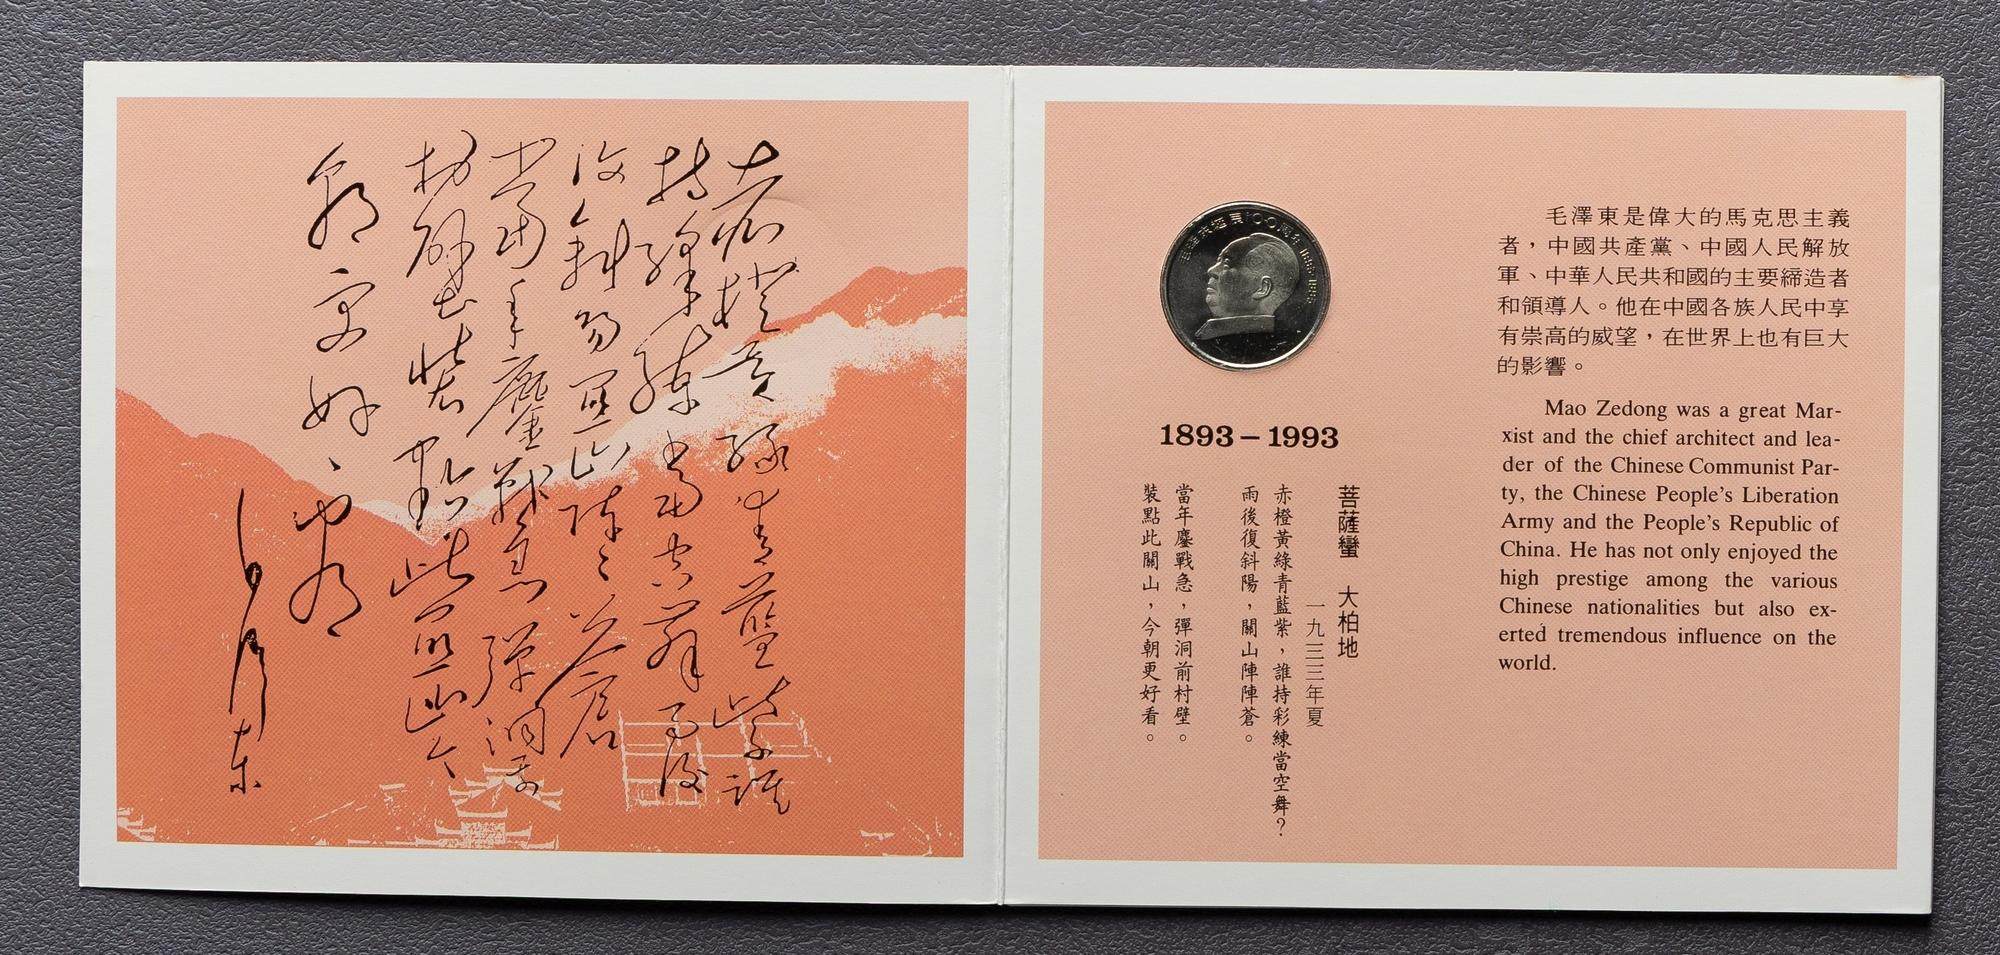 赤橙黄緑青藍紫誰
持彩練當空舞雨後
復斜陽關山陣陣蒼
當年鏖戰急彈洞前
村壁裝點此關山今
朝更好看
毛泽东
毛泽东诞辰100周年 1893-1993
1893–1993
菩薩蠻 大柏地
一九三三年夏
赤橙黃綠青藍紫，誰持彩練當空舞？
雨後復斜陽，關山陣陣蒼。
當年鏖戰急，彈洞前村壁。
裝點此關山，今朝更好看。
毛澤東是偉大的馬克思主義
者，中國共產黨、中國人民解放
軍、中華人民共和國的主要締造者
和領導人。他在中國各族人民中享
有崇高的威望，在世界上也有巨大
的影響。
Mao Zedong was a great Mar-
xist and the chief architect and lea-
der of the Chinese Communist Par-
ty, the Chinese People's Liberation
Army and the People's Republic of
China. He has not only enjoyed the
high prestige among the various
Chinese nationalities but also ex-
erted tremendous influence on the
world.